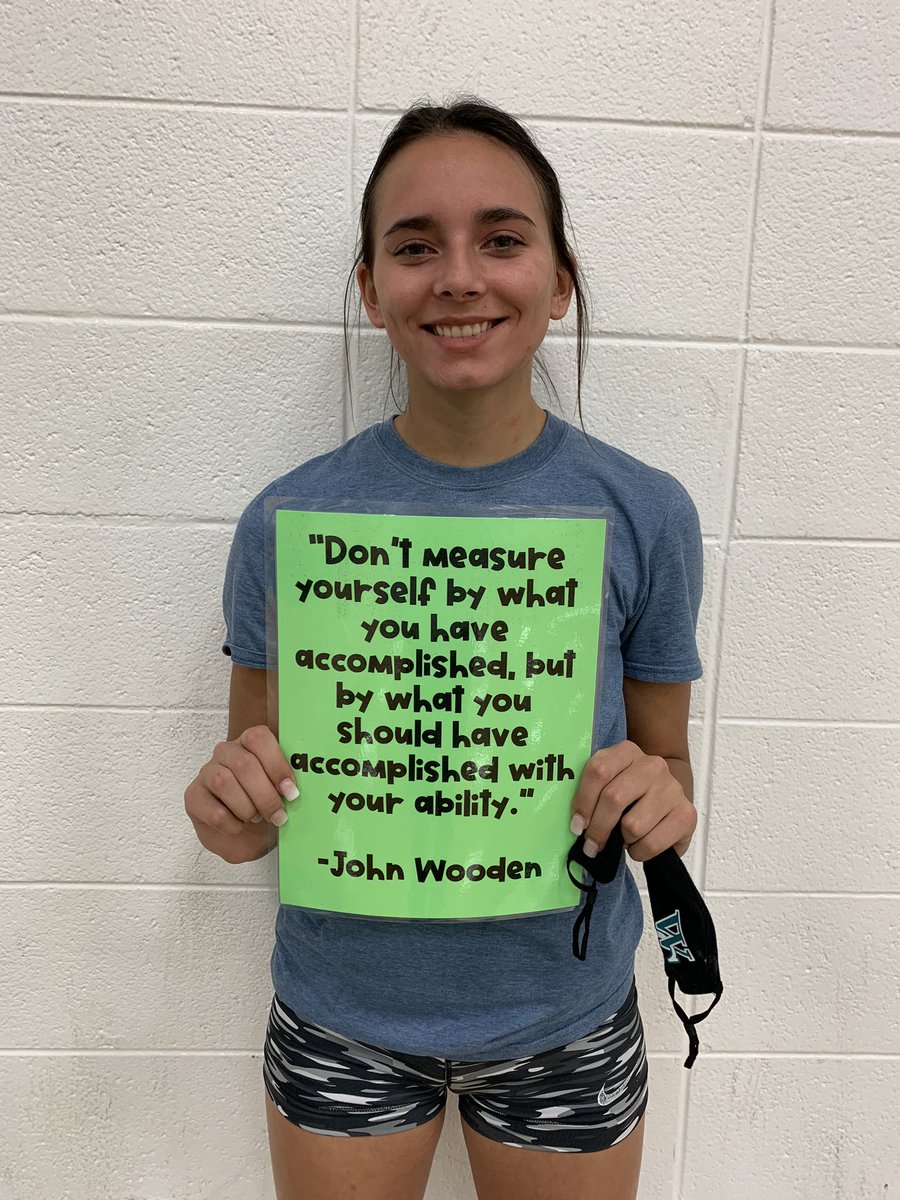 "Don't measure
yourself by what
you have
accomplished, but
by what you
should have
accomplished with
your ability."
-John Wooden